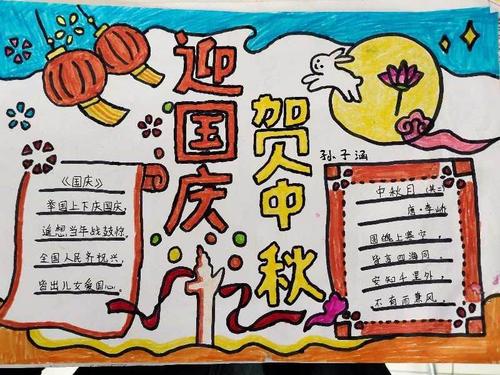 迎国庆
贺中秋
孙子涵
《国庆》
举国上下庆国庆,
遥想当年战鼓惊.
全国人民齐祝兴,
皆出儿女爱国心.
中秋月(其二)
唐·李峤
圆魄上寒空,
皆言四海同.
安知千里外,
不有雨兼风.